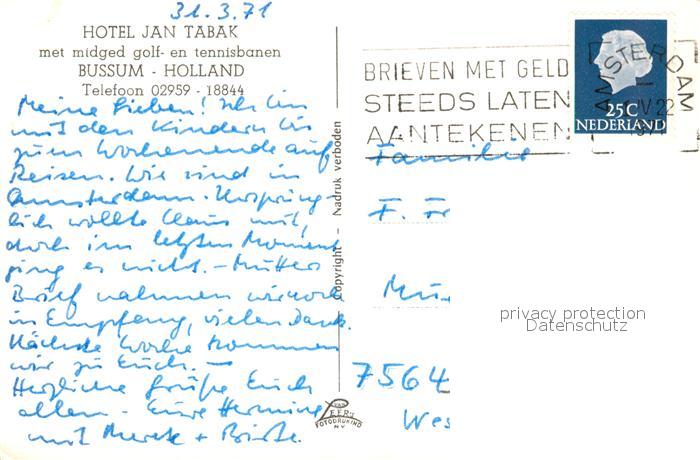 31.3.71
HOTEL JAN TABAK
met midged golf- en tennisbanen
BUSSUM - HOLLAND
Telefoon 02959 - 18844
Meine Lieben! Ich bin
mit den Kindern bis
zum Wochenende auf
Reisen. Wir sind in
Amsterdam. Ursprüng-
lich wollte Claus mit,
doch im letzten Moment
ging es nicht. - Mutters
Brief nahmen wir noch
in Empfang, vielen Dank.
Nächste Woche kommen
wir zu Euch. -
Herzliche Grüße Euch
allen - Eure
mit + Birte.
Copyright - Nadruk verboden
VAN LEER'S
FOTODRUKIND
N.V.
BRIEVEN MET GELD
STEEDS LATEN
AANTEKENEN
AMSTERDAM
IV 22
1971
25C
NEDERLAND
Familie
F. Fr
Mü
7564
Wes
privacy protection
Datenschutz